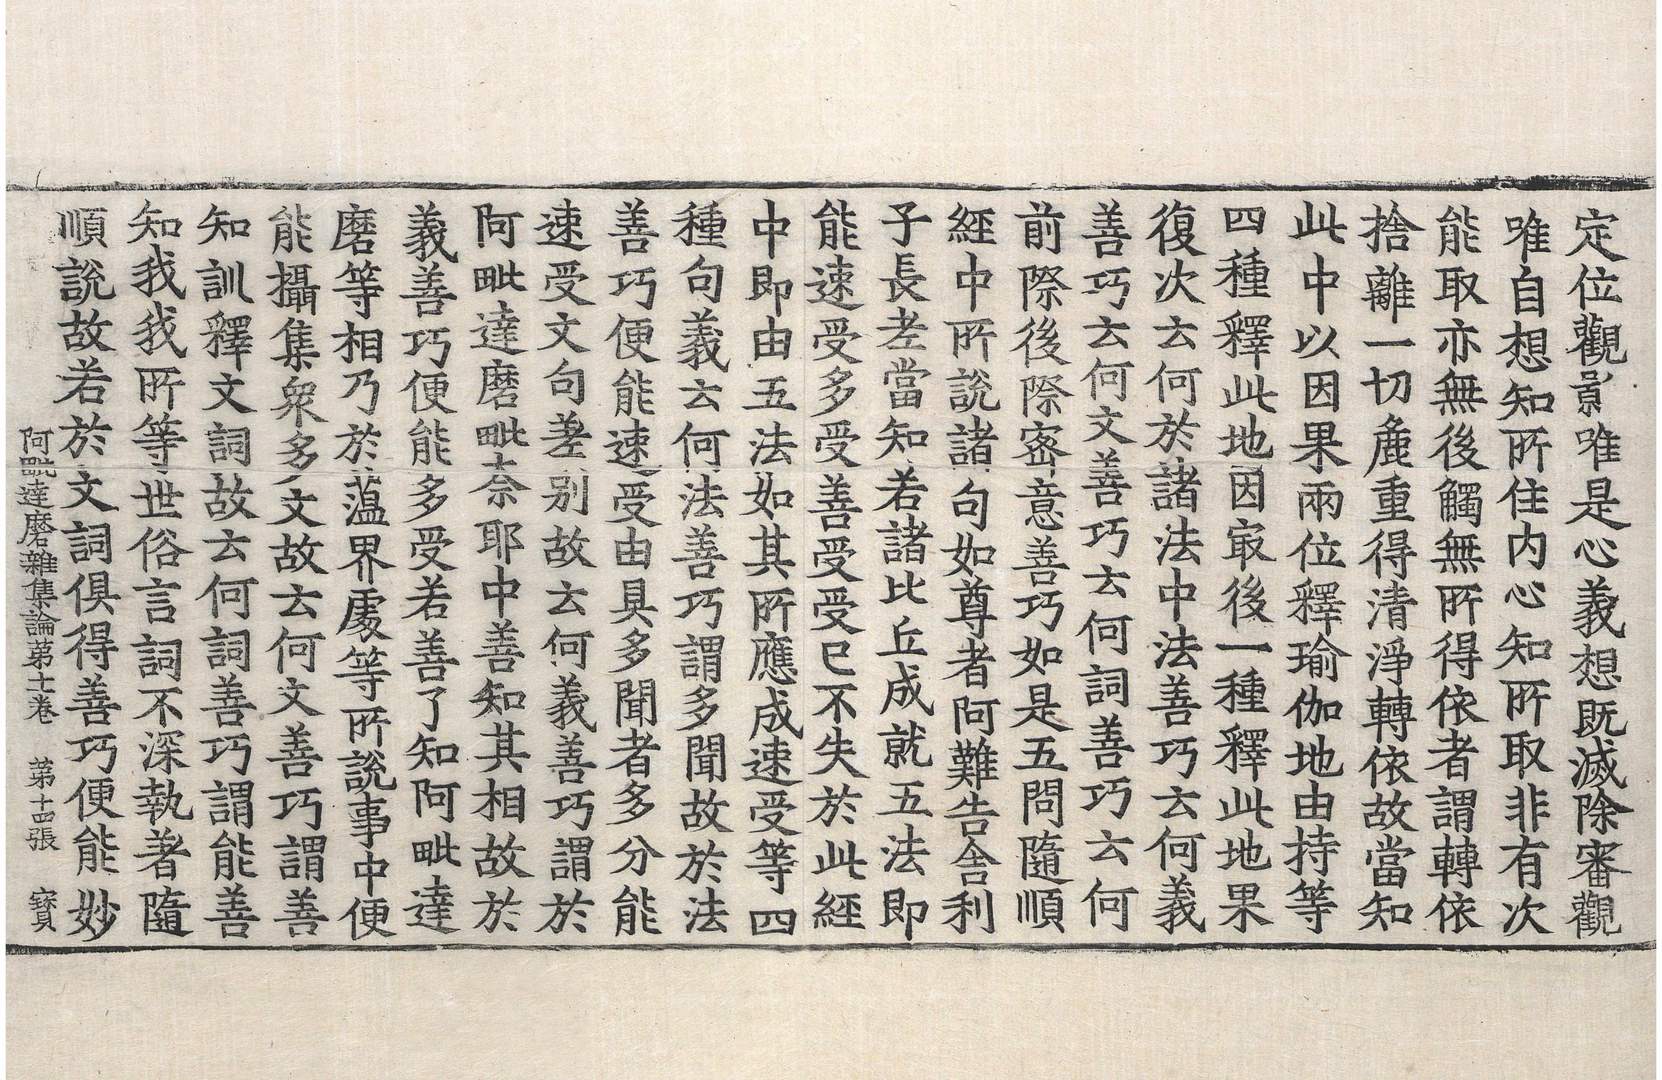 定位觀影唯是心義想既滅除審觀
唯自想知所住内心知所取非有次
能取亦無後觸無所得依者謂轉依
捨離一切麁重得清淨轉依故當知
此中以因果兩位釋瑜伽地由持等
四種釋此地因㝡後一種釋此地果
復次云何於諸法中法善巧云何義
善巧云何文善巧云何詞善巧云何
前際後際密意善巧如是五問隨順
經中所說諸句如尊者阿難告舍利
子長老當知若諸比丘成就五法即
能速受多受善受受已不失於此經
中即由五法如其所應成速受等四
種句義云何法善巧謂多聞故於法
善巧便能速受由具多聞者多分能
速受文句差别故云何義善巧謂於
阿毗達磨毗柰耶中善知其相故於
義善巧便能多受若善了知阿毗達
磨等相乃於薀界處等所說事中便
能攝集衆多文故云何文善巧謂善
知訓釋文詞故云何詞善巧謂能善
知我我所等世俗言詞不深執著隨
順說故若於文詞俱得善巧便能妙
阿毗達磨雜集論苐十一卷 苐十四張 寳